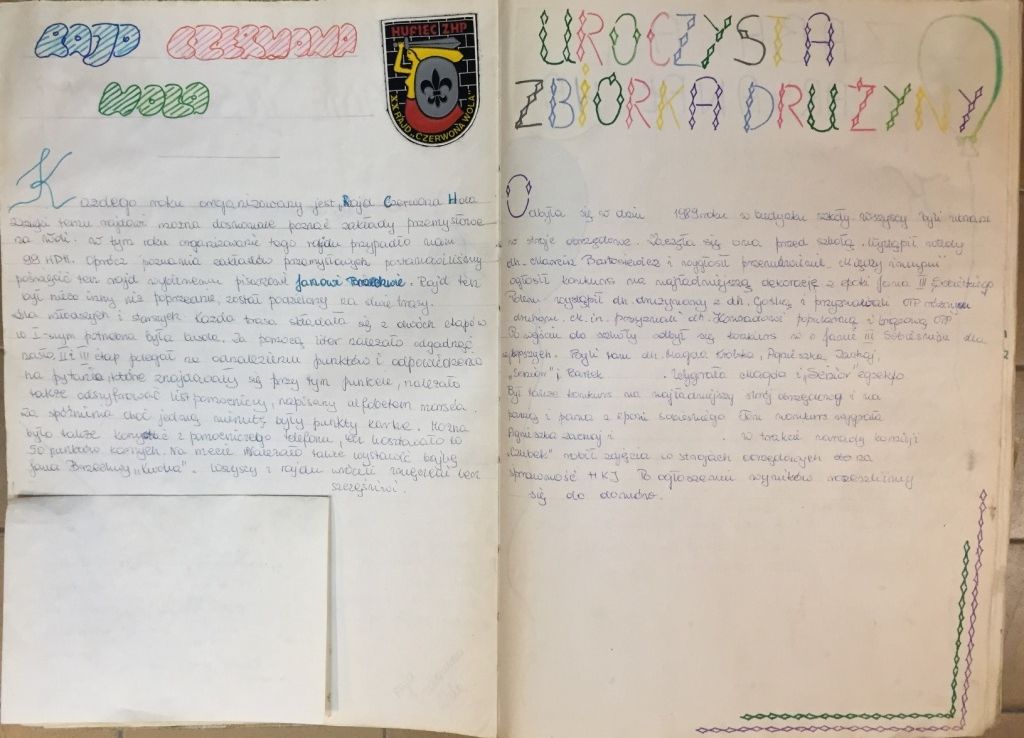 RAJD CZERWONA
WOLA
HUFIEC ZHP
XX RAJD „CZERWONA WOLA”
Każdego roku organizowany jest „Rajd Czerwona Wola
temu rajdowi można doskonale poznać zakłady przemysłowe
na Woli. W tym roku organizowanie tego rajdu przypadło nam
99 HDH. Oprócz poznania zakładów przemysłowych postanowiliśmy
poświęcić ten rajd wybitnemu pisarzowi Janowi Brzechwie. Rajd ten
był nieco inny niż poprzednie, został podzielony na dwie trasy.
Dla młodszych i starszych. Każda trasa składała się z dwóch etapów
w I-szym potrzebna była busola. Za pomocą liter należało odgadnąć
hasło. II i III etap polegał na odnalezieniu punktów i odpowiedzeniu
na pytania, które znajdowały się przy tym punkcie, należało
także odszyfrować list pomocniczy, napisany alfabetem morsea.
Za spóźnienia choć jedną minutę były punkty karne. Można
było także korzystać z pomocniczego telefonu, ale kosztowało to
50 punktów karnych. Na mecie należało także wystawić bajkę
Jana Brzechwy „Kwoka”. Wszyscy z rajdu wrócili zmęczeni lecz
szczęśliwi.
UROCZYSTA
ZBIÓRKA DRUŻYNY
Odbyła się w dniu 1989 roku w budynku szkoły. Wszyscy byli ubrani
w stroje obrzędowe. Zaczęła się ona przed szkołą. Wystąpił wtedy
dh. Marcin Bartosiewicz i wygłosił przemówienie. Między innymi
ogłosił konkurs na najładniejszą dekorację z epoki Jana III Sobieskiego
Potem wystąpił dh. drużynowy z dh. Gośką i przyznawali
druhom. m. in. przyznali dh. Konradowi popularną i brązową
Po wejściu do szkoły odbył się konkurs w o Janie III Sobieskim dla
najlepszych. Byli tam dh. Magda Agnieszka
„Senior” i Bartek . Wygrała Magda i „Senior”
Był także konkurs na najładniejszy strój obrzędowy i na
panią i pana z epoki Sobieskiego. Ten konkurs wygrała
Agnieszka i . W trakcie narady komisji
„Czubek” robił zdjęcia w strojach obrzędowych
sprawność HKJ. Po ogłoszeniu wyników rozeszliśmy
się do domów.